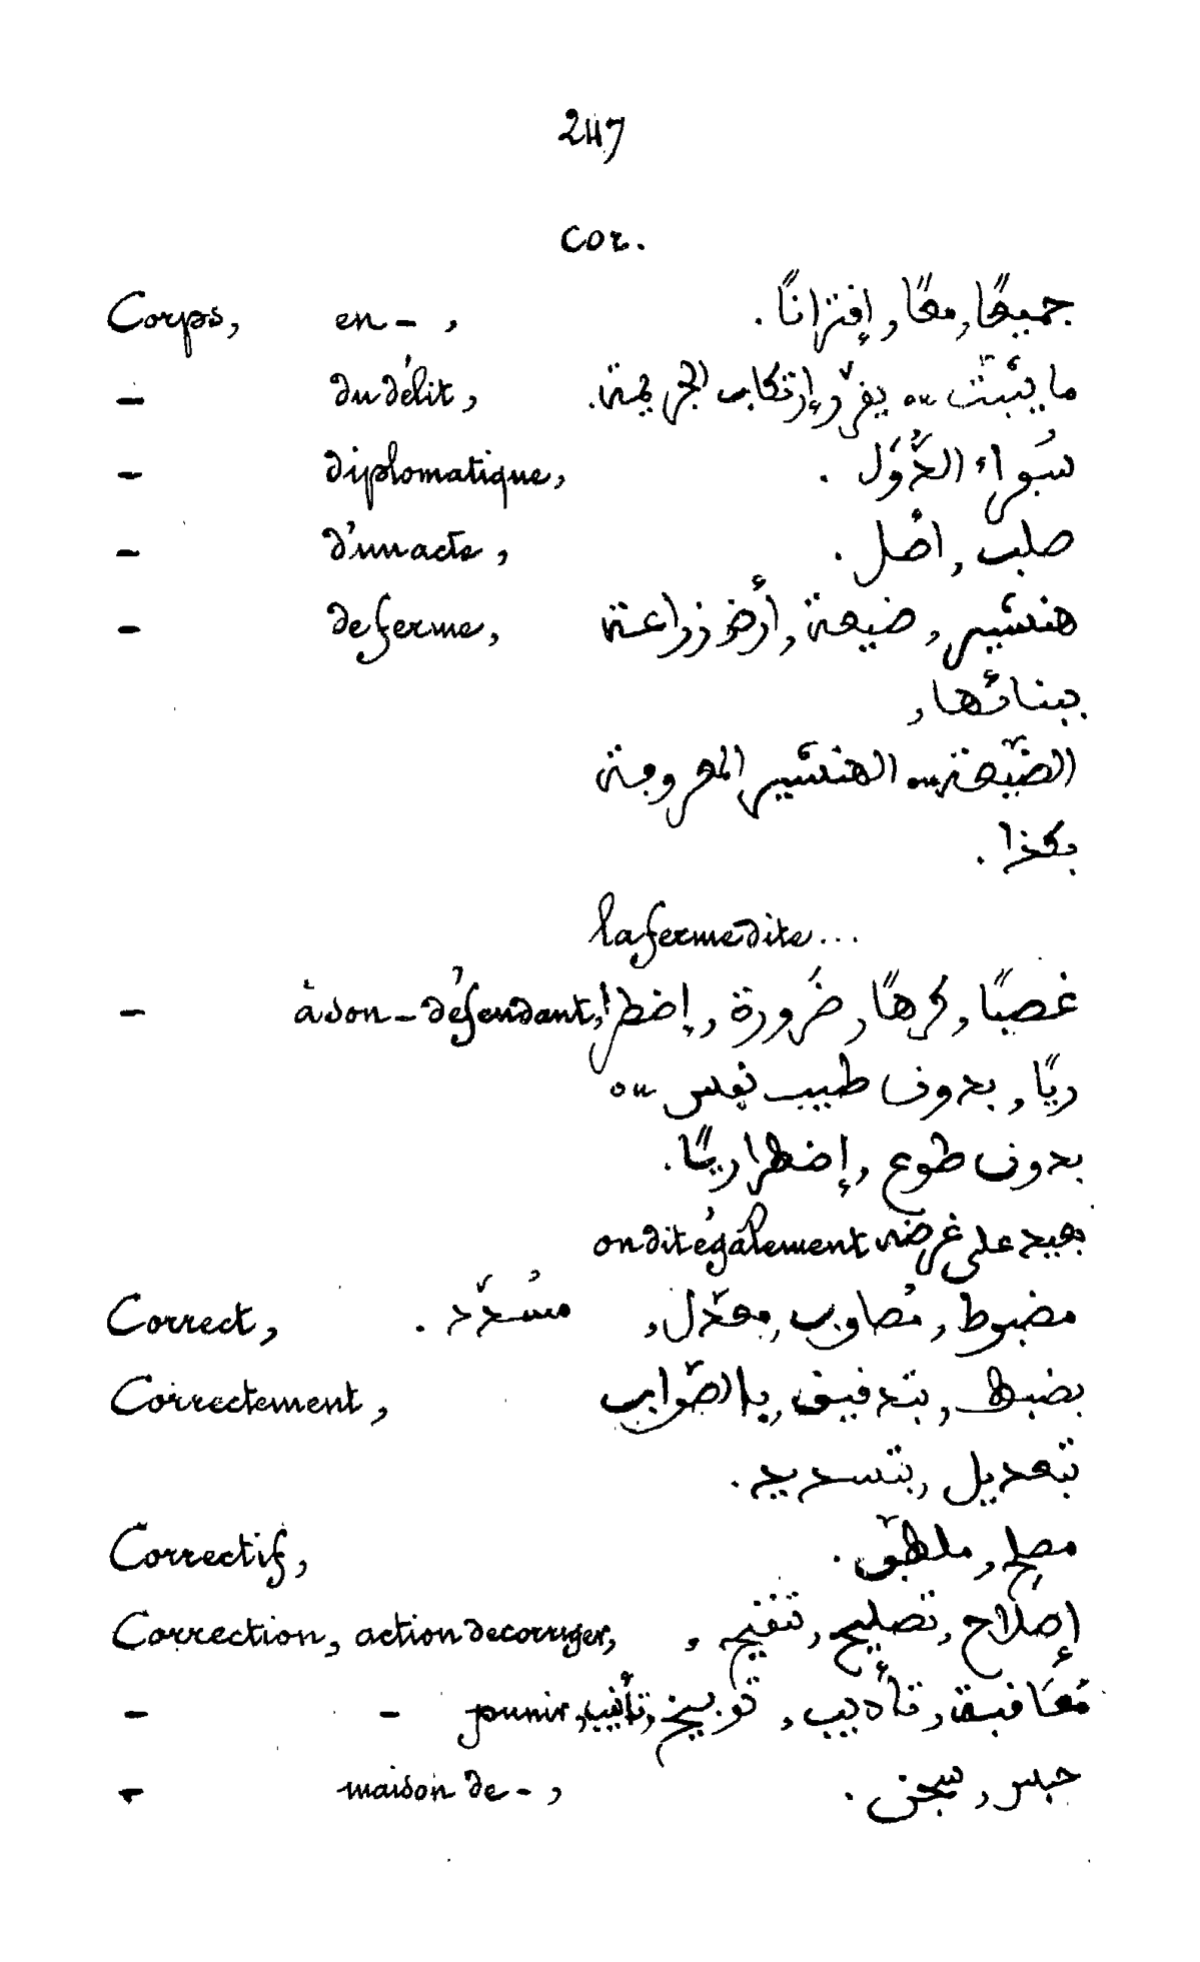 247
Cor.
Corps, en - , جميعًا, معًا, إفترانًا.
- du délit, ما يثبت ou يفرّر إرتكاب الجريمة.
- diplomatique, سُبراء الدُّوَل.
- d'un acte, صلب, اصل.
- de ferme, هنشير, ضيعة, أرض زراعة
ببنائها,
الضيعة ou الهنشير المعروبة
بكذا.
la ferme dite...
- à son - défendant, غصبًا, كرهًا, ضَرورة, إضطرا,
ريًا, بدون طيب نفس ou
بدون طوع, إضطراريًا.
on dit également بعيد على غرضه
Correct, مضبوط, مُصاوب, معدّل, مُسدّد.
Correctement, بضبط, بتدفيق, بالصّواب
بتعديل, بتسديد.
Correctif, مصلح, ملطّف.
Correction, action de corriger, إصلاح, تصليح, تنقيح,
- - punir, مُعَاقبة, تأديب, توبيخ, تأنيب,
- maison de - , حبس, سجن.